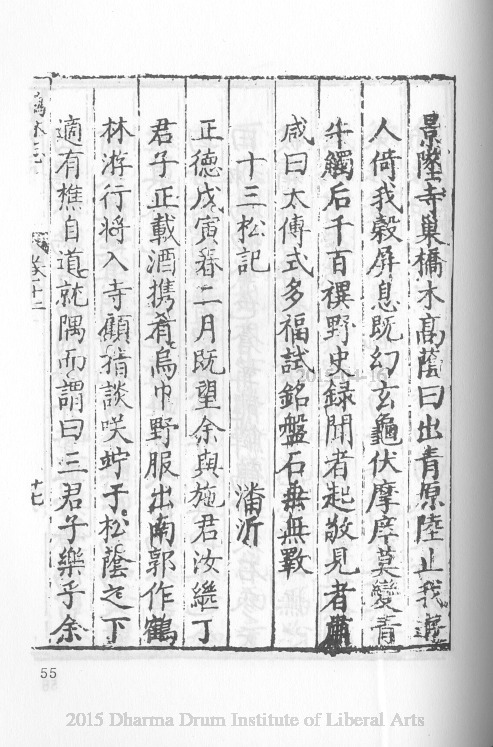 景陞寺巢橋木高蔭曰出青原陸止我
人倚我穀屏息既幻玄龜伏摩庠莫變青
牛觸后千百禩野史録聞者起敬見者肅
咸曰太傅式多福試銘盤石垂無斁
十三松記 潘沂
正德戊寅春二月既望余與施君汝繼丁
君子正載酒携肴烏巾野服出南郭作鶴
林游行將入寺顧指談咲竚于松蔭之下
適有樵自道就隅而謂曰三君子樂乎余
卷二十二
十七
55
2015 Dharma Drum Institute of Liberal Arts